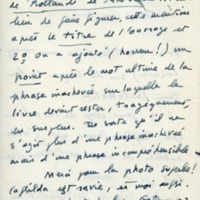 de Rolland de
bien de faire figurer cette mention
après le titre de l'ouvrage et
2º on a ajouté (horreur!) un
point après le mot ultime de la
phrase inachevée sur laquelle le
livre devait rester, tragiquement,
en suspens. De sorte qu'il ne
s'agit plus d'une phrase inachevée
mais d'une phrase incompréhensible
Merci pour la photo superbe!
est ravie, et moi aussi.